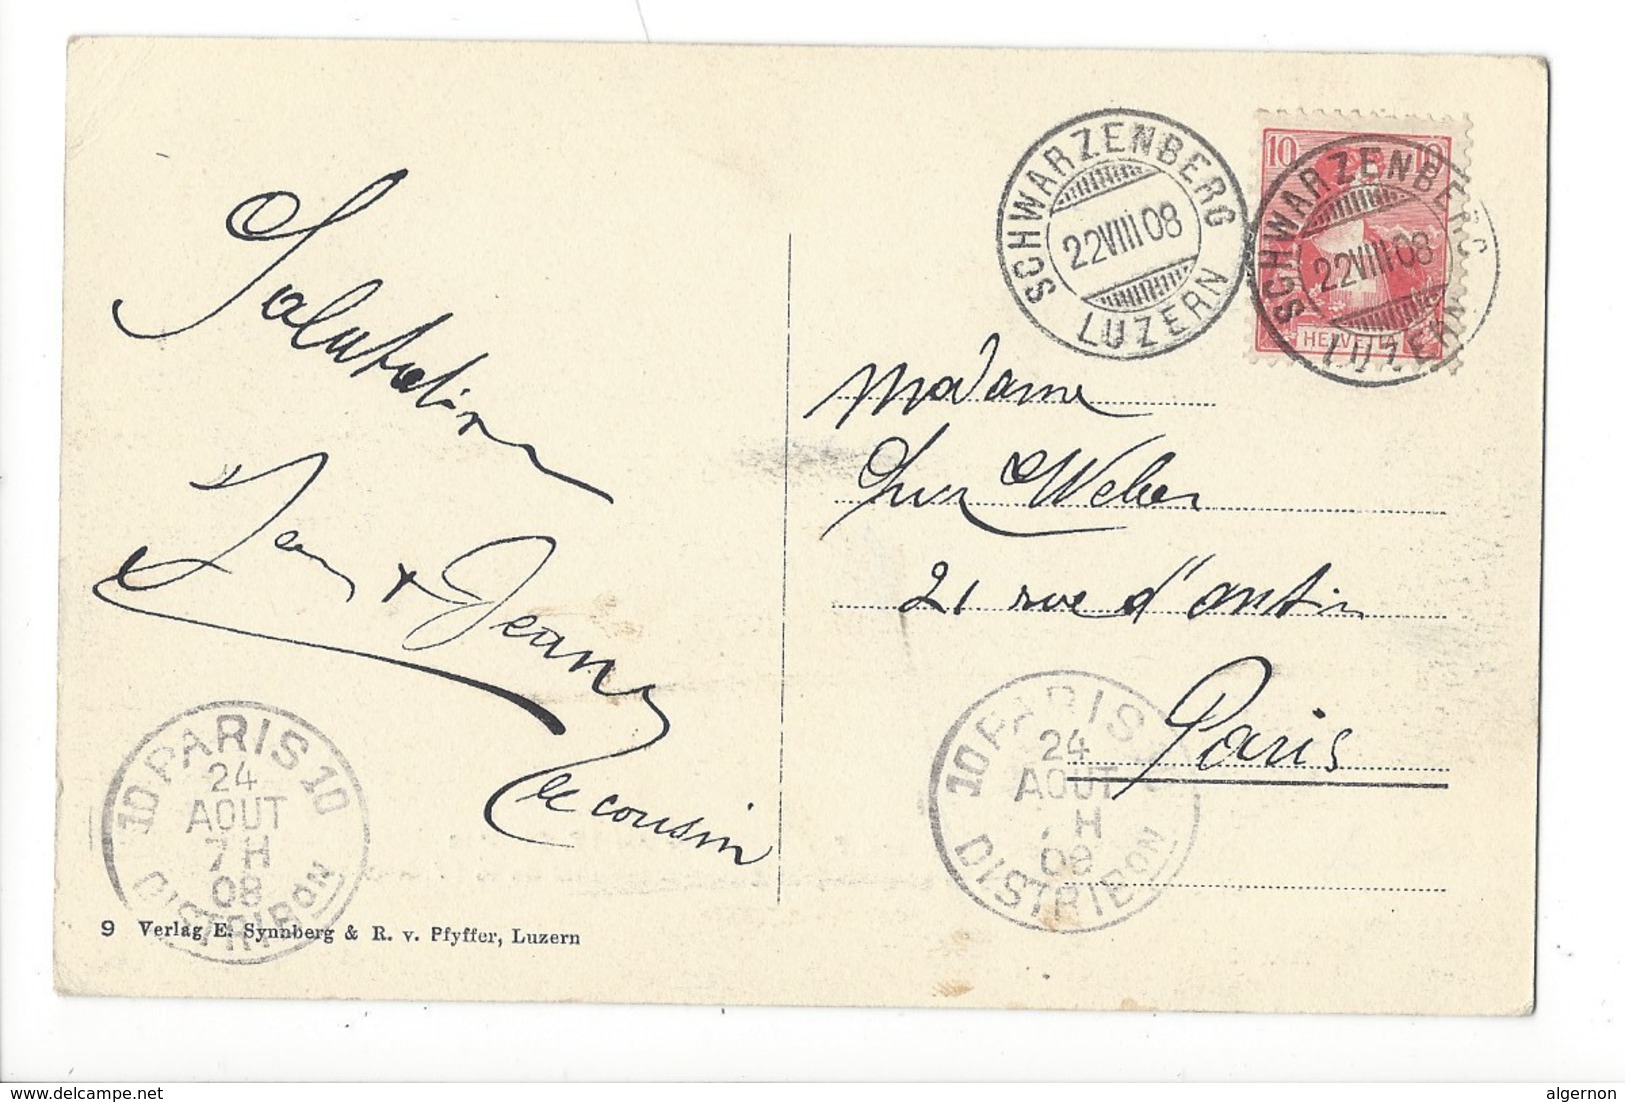 SCHWARZENBERG
22 VIII 08
LUZERN
10 10
HELVETIA
SCHWARZENBERG
22 VIII 08
LUZERN
Salutation
Jean
le cousin
Madame
Weber
21 rue d'antin
Paris
10 PARIS 10
24
AOUT
7 H
08
DISTRIBON
10 PARIS
24
AOUT
H
08
DISTRIBON
9 Verlag E. Synnberg & R. v. Pfyffer, Luzern
www.delcampe.net
algernon